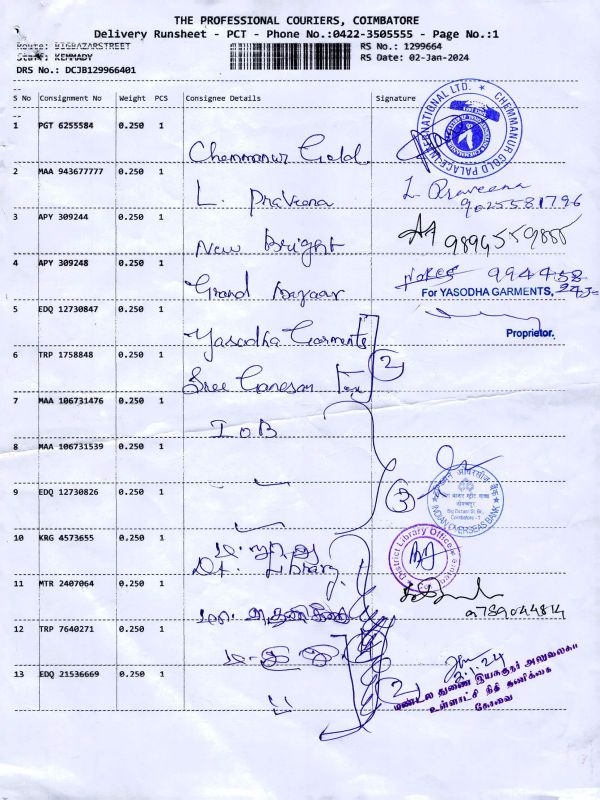 THE PROFESSIONAL COURIERS, COIMBATORE
Delivery Runsheet - PCT - Phone No.:0422-3505555 - Page No.:1
Route: BIGBAZARSTREET RS No.: 1299664
Staff: KEMMADY RS Date: 02-Jan-2024
DRS No.: DCJB129966401
S No Consignment No Weight PCS Consignee Details Signature
1 PGT 6255584 0.250 1 Chemmanur Gold
CHEMMANUR GOLD PALACE INTERNATIONAL LTD.
2 MAA 943677777 0.250 1 L. Praveena L Praveena
9025581796
3 APY 309244 0.250 1 New Bright 9894559885
4 APY 309248 0.250 1 Grand Bazaar 994458
For YASODHA GARMENTS,
5 EDQ 12730847 0.250 1 Yasodha Garments
Proprietor.
6 TRP 1758848 0.250 1 Sree Ganesan Tex 2
7 MAA 106731476 0.250 1 I O B
8 MAA 106731539 0.250 1 "
9 EDQ 12730826 0.250 1 " 3
INDIAN OVERSEAS BANK
Big Bazaar St. Br.,
Coimbatore - 1
10 KRG 4573655 0.250 1
Dt. Library
District Library Office
11 MTR 2407064 0.250 1
9789044814
12 TRP 7640271 0.250 1
13 EDQ 21536669 0.250 1 " 2
2.1.24
மண்டல துணை இயக்குநர் அலுவலகம்
உள்ளாட்சி நிதி தணிக்கை
கோவை